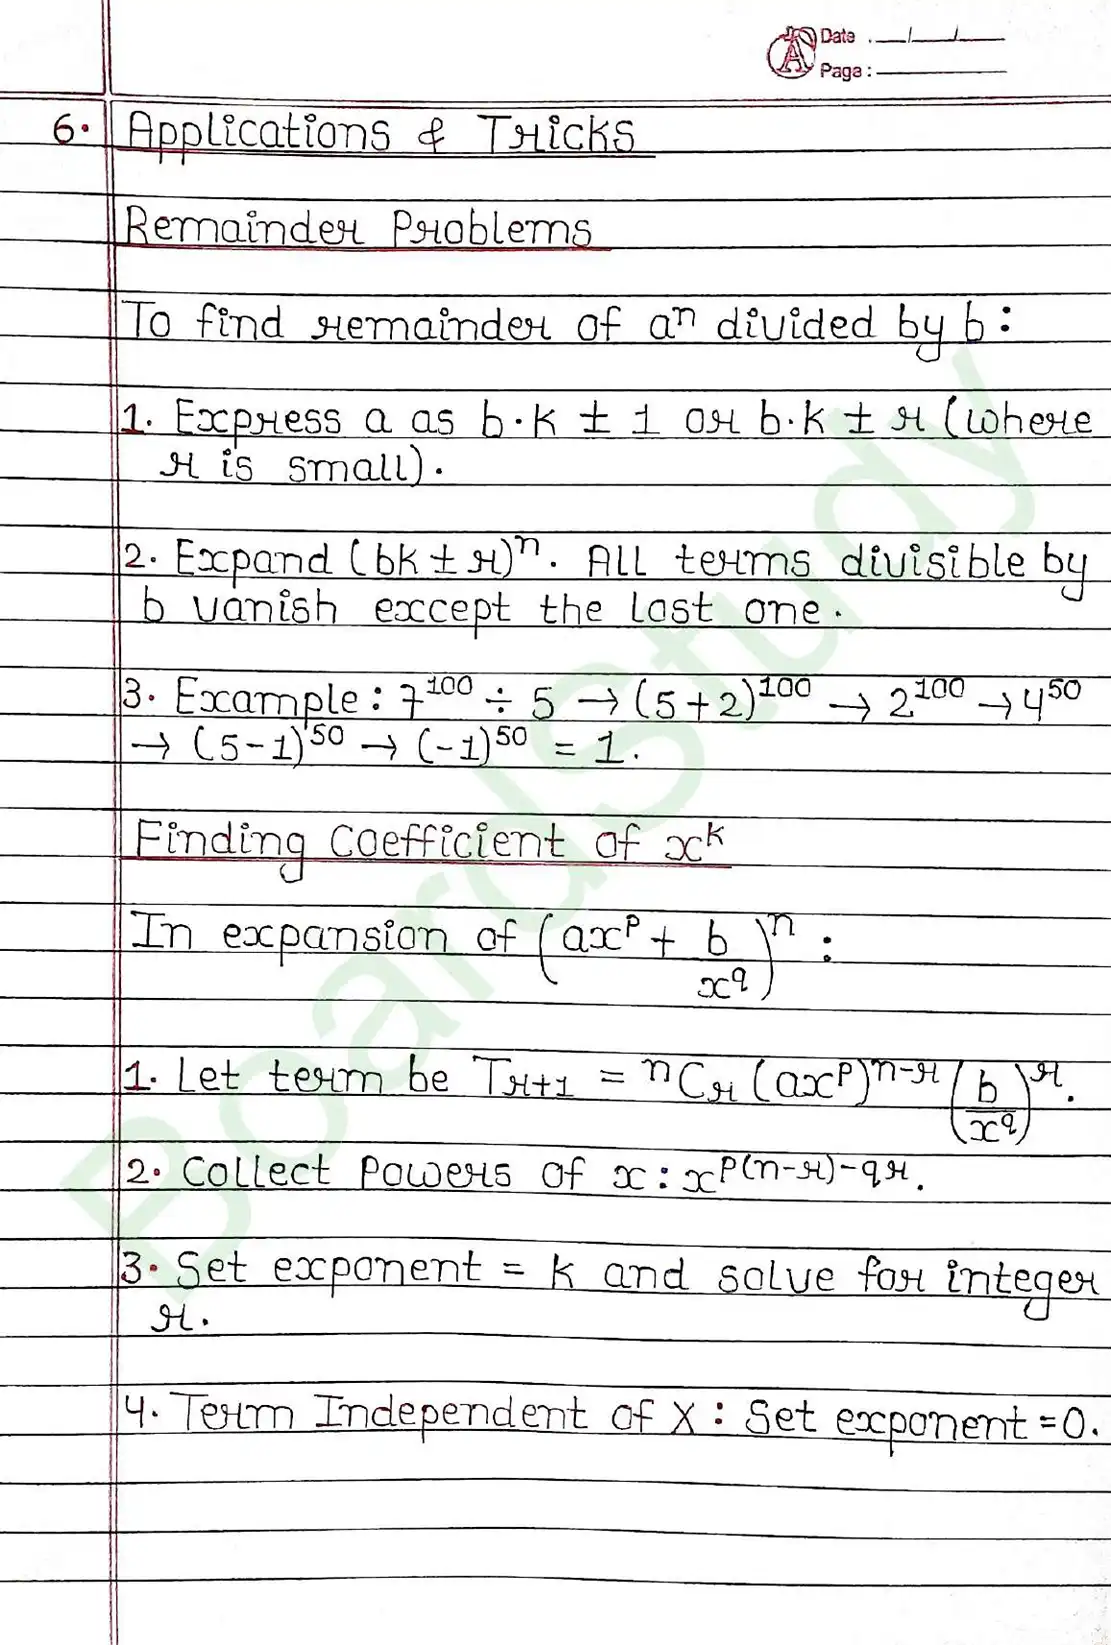 Date . __/__/__
Page :
6. Applications & Tricks
Remainder Problems
To find remainder of aⁿ divided by b :
1. Express a as b·k ± 1 or b·k ± r (where
r is small).
2. Expand (bk ± r)ⁿ. All terms divisible by
b vanish except the last one.
3. Example : 7¹⁰⁰ ÷ 5 → (5+2)¹⁰⁰ → 2¹⁰⁰ → 4⁵⁰
→ (5-1)⁵⁰ → (-1)⁵⁰ = 1.
Finding Coefficient of xᵏ
In expansion of (axᵖ + b/x^q)ⁿ :
1. Let term be Tᵣ₊₁ = ⁿCᵣ (axᵖ)ⁿ⁻ʳ (b/x^q)ʳ.
2. Collect Powers of x : x^(p(n-r)-qr).
3. Set exponent = k and solve for integer
r.
4. Term Independent of X : Set exponent = 0.
BoardStudy